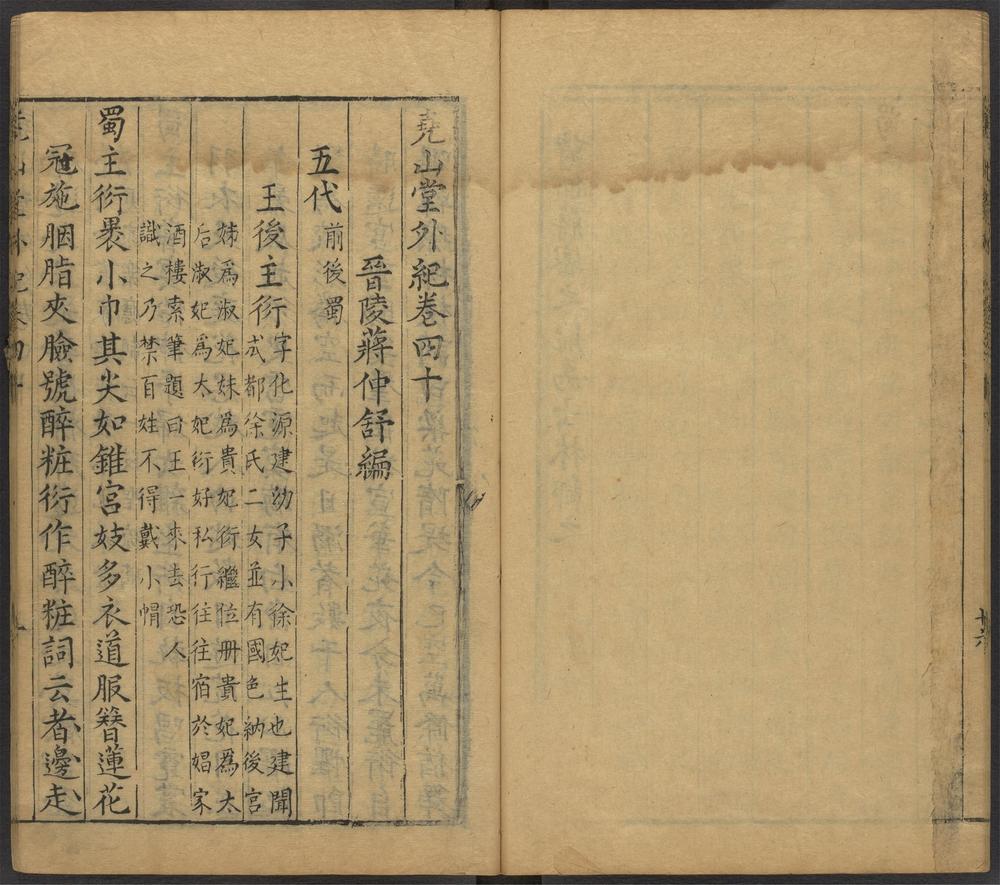 十六
堯山堂外紀卷四十
晉陵蔣仲舒編
五代
前後蜀
王後主衍
字化源建幼子小徐妃生也建聞
成都徐氏二女並有國色納後宮
姊爲淑妃妹爲貴妃衍繼位册貴妃爲太
后淑妃爲太妃衍好私行往往宿於娼家
酒樓索筆題曰王一來去恐人
識之乃禁百姓不得戴小帽
蜀主衍褁小巾其尖如錐宮妓多衣道服簪蓮花
冠施胭脂夾臉號醉粧衍作醉粧詞云者邊走